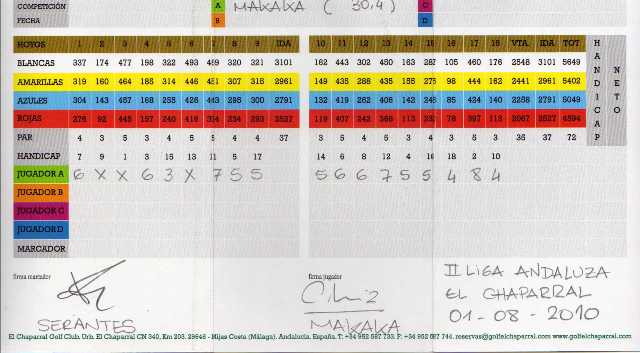 COMPETICIÓN A MAKAKA (30,4) C
FECHA B D
HOYOS 1 2 3 4 5 6 7 8 9 IDA 10 11 12 13 14 15 16 17 18 VTA. IDA TOT HANDICAP NETO
BLANCAS 337 174 477 198 322 493 459 320 321 3101 162 443 302 450 163 287 105 460 176 2548 3101 5649
AMARILLAS 319 160 464 185 314 446 451 307 315 2961 149 435 288 435 155 275 98 444 162 2441 2961 5402
AZULES 304 143 457 168 255 426 443 295 300 2791 132 419 262 406 142 248 85 424 140 2258 2791 5049
ROJAS 276 92 445 157 240 416 374 234 293 2527 119 407 242 368 113 232 76 397 113 2067 2527 4594
PAR 4 3 5 3 4 5 5 4 4 37 3 5 4 5 3 4 3 5 3 35 37 72
HANDICAP 7 9 1 3 15 13 11 5 17 14 6 8 12 4 16 18 2 10
JUGADOR A 6 X X 6 3 X 7 5 5 5 6 6 7 5 5 4 8 4
JUGADOR B
JUGADOR C
JUGADOR D
MARCADOR
firma marcador firma jugador
SERANTES MAKAKA
II LIGA ANDALUZA
EL CHAPARRAL
01-08-2010
El Chaparral Golf Club. Urb. El Chaparral CN 340, Km 203. 29648 - Mijas Costa (Málaga). Andalucía, España. T: +34 952 587 733. F: +34 952 587 744. reservas@golfelchaparral.com www.golfelchaparral.com